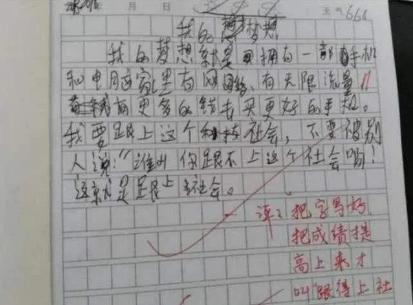 月 日 天气
我的梦想
我的梦想就是拥有一部手机
和电脑家里有网络、有无限流量!!
有更多的钱去买更好的手机。
我要跟上这个社会,不要被别
人说:"谁叫你跟不上这个社会哟!
这就是跟上社会。
评:把字写好
把成绩提
高上来才
叫"跟得上社